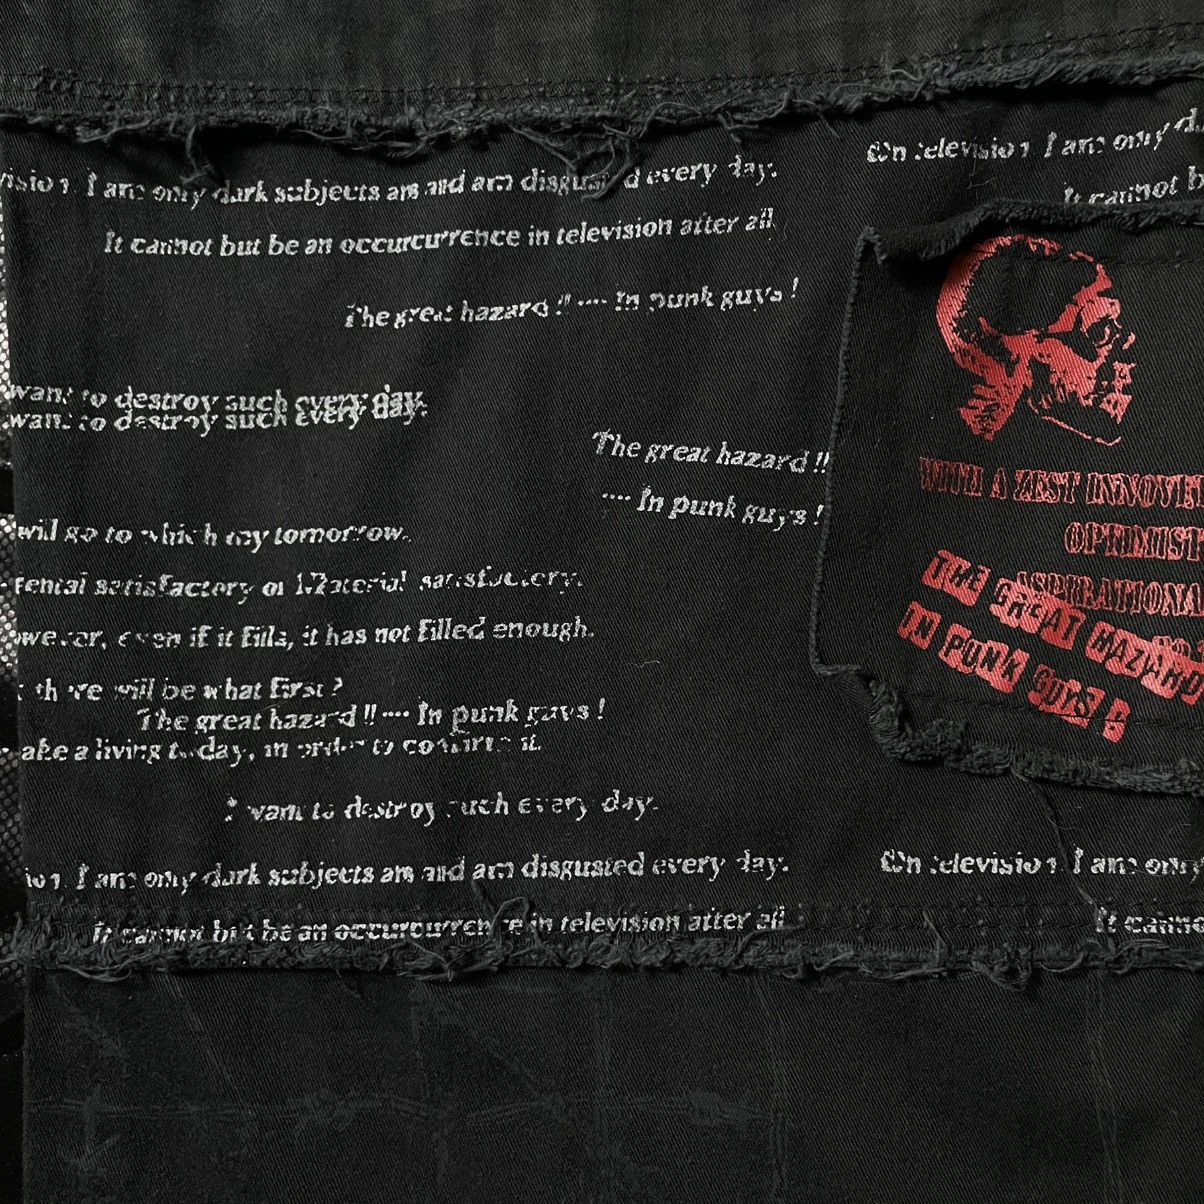 On television I am only
I am only dark subjects am and am disgusted every day.
It cannot b
It cannot but be an occurcurrence in television after all
The great hazard !! ···· In punk guys !
want to destroy such every day.
want to destroy such every day.
The great hazard !!
···· In punk guys !
WITH A ZEST INNOVE
OPTIMIST
ASPIRATIONA
THE GREAT HAZARD
IN PUNK GUYS !
will go to which my tomorrow.
satisfactory or Material satisfactory.
even if it fills, it has not filled enough.
there will be what first ?
The great hazard !! ···· In punk guys !
ake a living today, in order to confirm it.
I want to destroy such every day.
I am only dark subjects am and am disgusted every day.
On television I am only
It cannot but be an occurcurrence in television after all
It canno